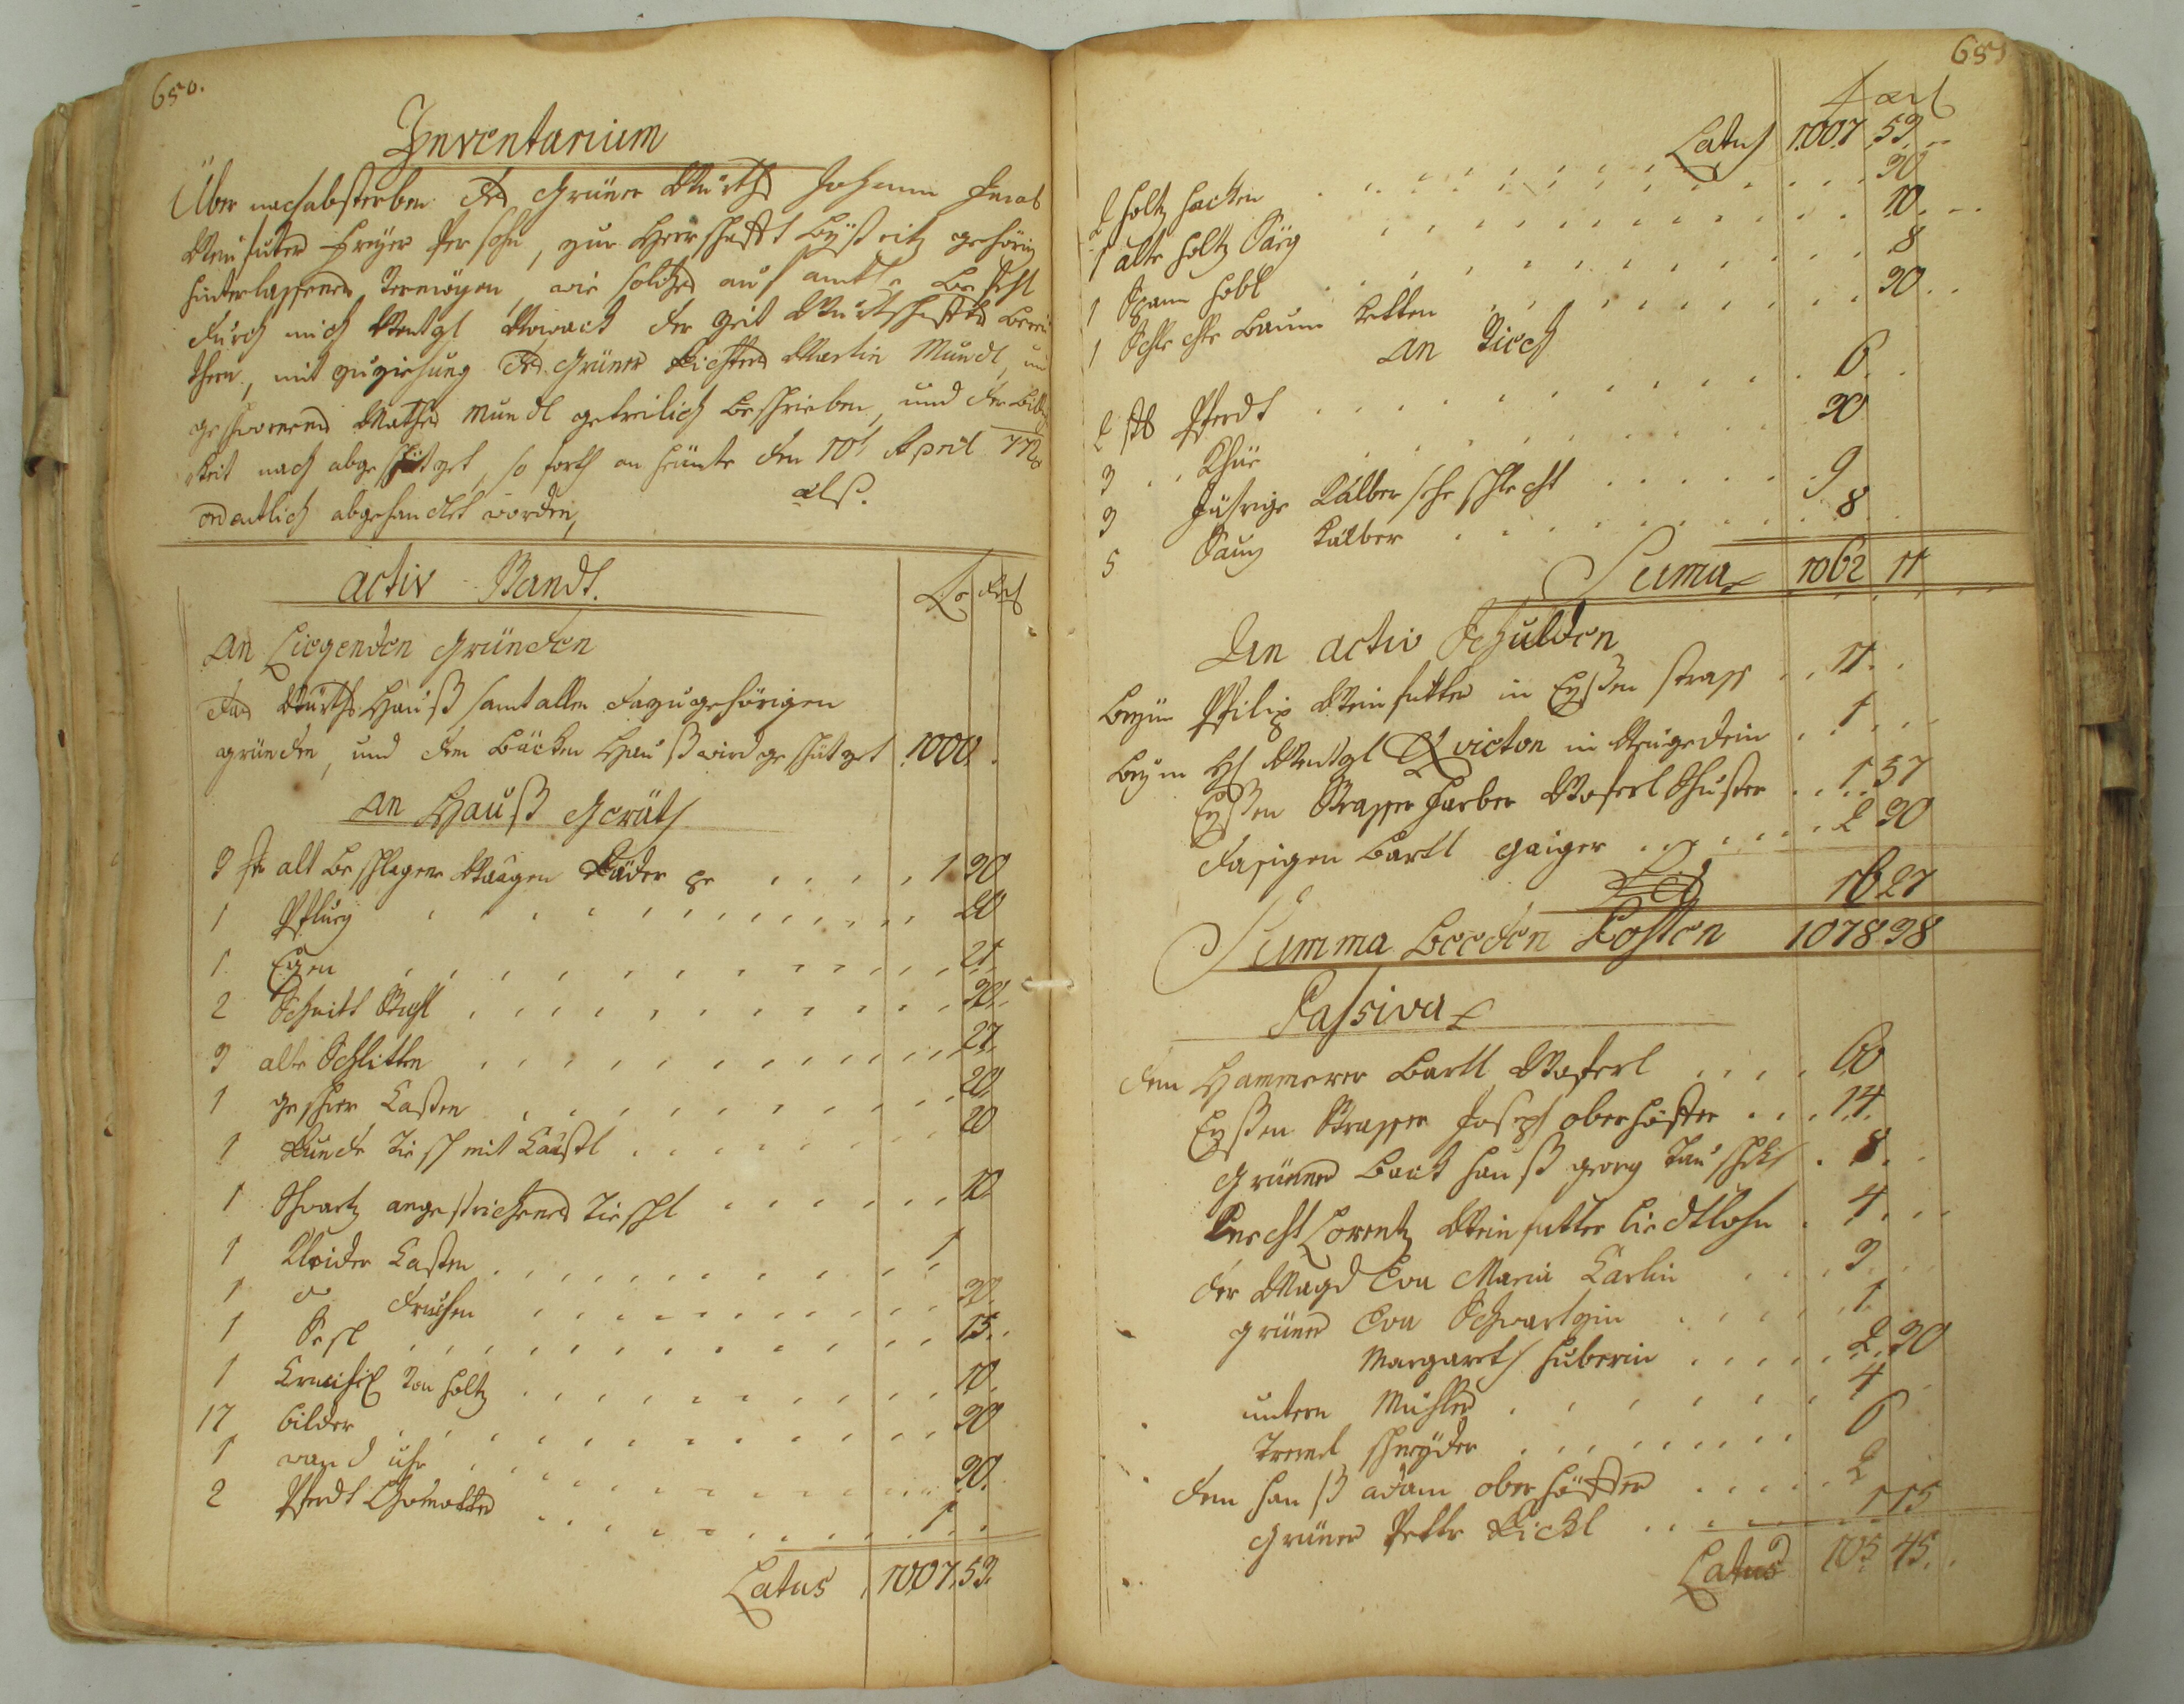 650.
Inventarium
Über nach absterben des Grüner Würths Johann Jacob
Weinfuters freyer Persohn, zur Herrschafft gehörig
hinterlassenen Vermögen, wie solches auf ambts Befehl
durch mich Wentzl der Zeit Würthschaffts
mit zuziehung des Grüner Richters Martin Mundl, und
geschwornens Mathes Mundl getreilich beschrieben, und der Billig
keit nach abgeschätzet, so forth an heünte den 10t April
ordentlich abgehandlet worden,
alß.
activ Standt.
An Liegenden Gründen
das Würths Hauß samt allen dazugehörigen
gründen, und dem Bäcken Hauß wird geschätzet 1000
An Hauß Geräth
3 stk alt beschlagene Waagen Räder pr 1 30
1 Pflueg 20
1 Egen 21
2 Schnitt Stuhl 30
3 alte Schlitten 27
1 geschier Casten 20
1 Runde Tisch mit Cästl 20
1 Schwartz angestrichenes Tischl 10
1 Kleider Casten 1
1 do druhen 30
1 Sesl 15
1 Crucifix von Holtz 10
17 bilder 30
1 wand uhr 30
2 Pferdt 1
Latus 1007 53
651
Latus 1007 53
2 Holtz Hacken 30
1 alte Holtz Säeg 10
1 Spann Sobl 8
1 Schlechte Baum Ketten 30
An Viech
2 stk Pferdt 6
3 Khüe 30
3 Jährige Kälber sehr schlecht 9
5 Saug Kälber 8
Suma 1062 11
An activ Schulden
Beym Philip Weinfutter in Eyssen strass 11
Beym H Wentzl in Neugedein 1
Eyssen Strasser farber Schuster 1 57
dasigen Bartl gaiger 2 30
16 27
Summa Beeden Posten 1078 38
Passiva
dem Hammerer Bartl 60
Eyssen Strasser Joseph oberhöffer 14
Grüner Back Hauß georg 8
Knecht Lorentz Weinfutter Liedtlohn 4
der Magd Eva Maria Carlin 3
grüner Eva Schwartzin 1
Margareth Huberin 2 30
untern Mühler 4
Treml schneyder 6
dem Hanß adam oberhöffer 2
grüner Peter Rickl 1 15
Latus 105 45